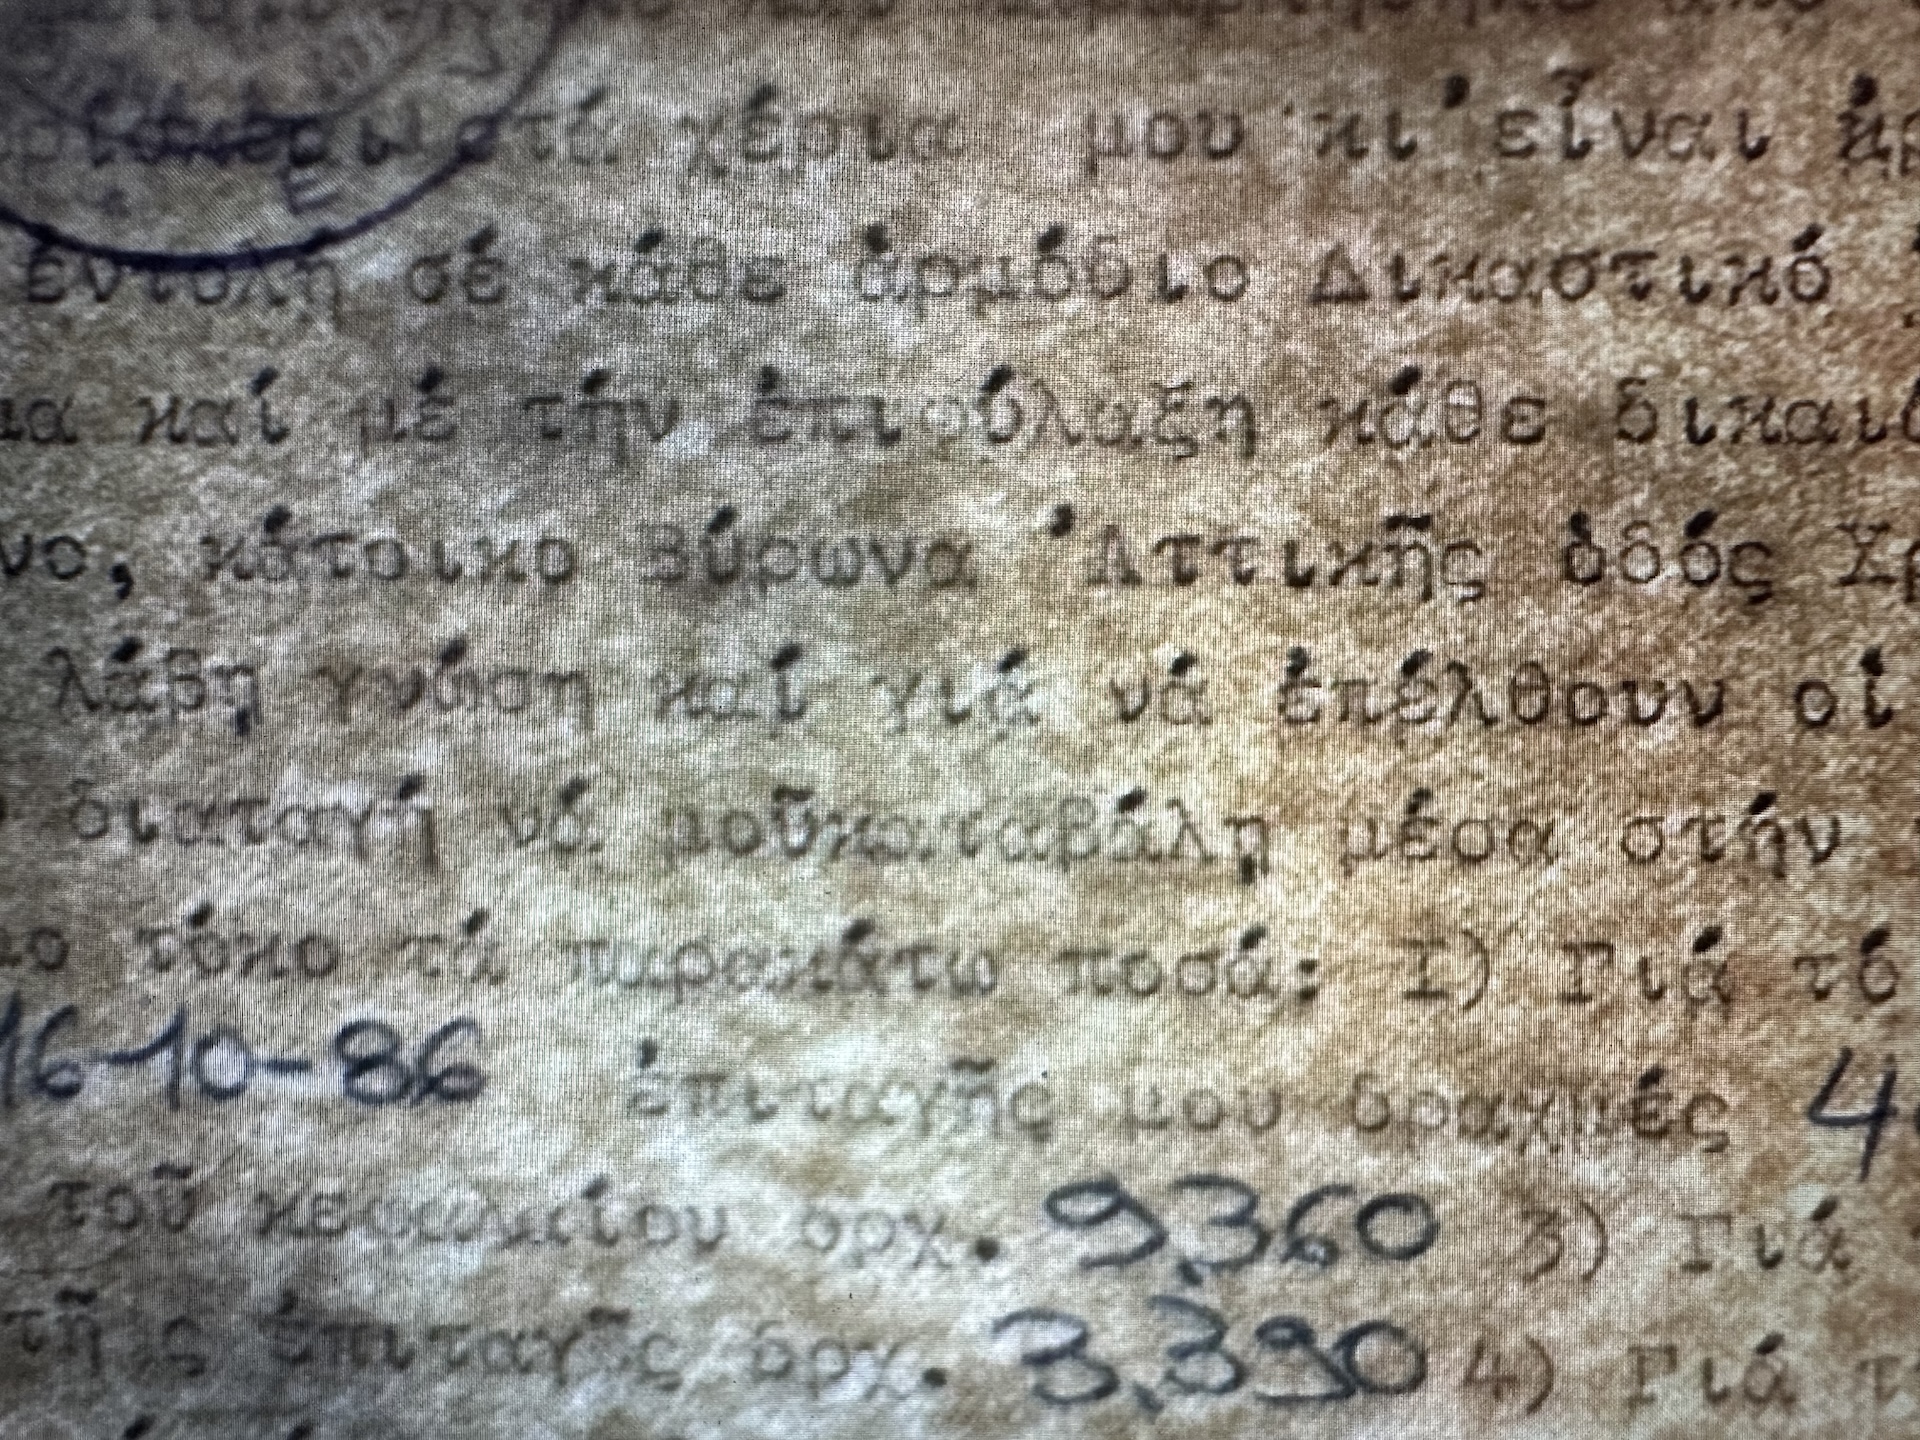 στά χέρια μου κι' εἶναι
ἐντολή σέ κάθε ἁρμόδιο Δικαστικό
καί μέ τήν ἐπιφύλαξη κάθε
κάτοικο Βύρωνα Ἀττικῆς ὁδός
λάβη γνώση καί γιά νά ἐπέλθουν οἱ
διαταγή νά μοῦ καταβάλη μέσα στήν
τόκο τά παρακάτω ποσά: Ι) Γιά τό
16-10-86 ἐπιταγῆς μου δραχμές 4
τοῦ κεφαλαίου δρχ. 9,360 3) Γιά
τῆς ἐπιταγῆς δρχ. 3,390 4) Γιά